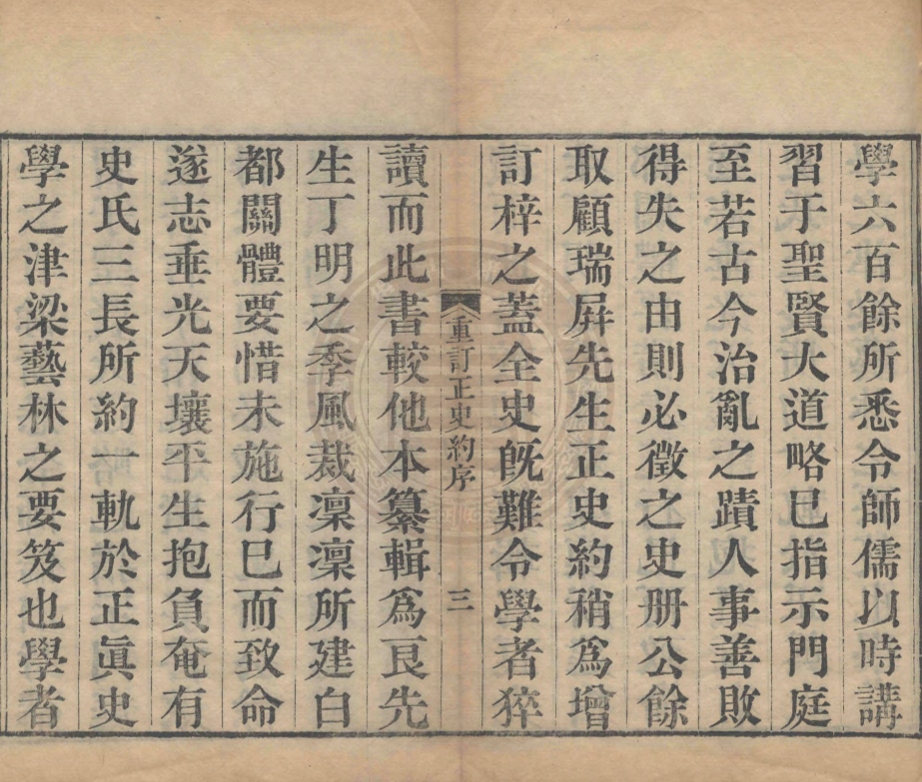 學六百餘所悉令師儒以時講
習于聖賢大道略巳指示門庭
至若古今治亂之蹟人事善敗
得失之由則必徵之史册公餘
取顧瑞屛先生正史約稍爲增
訂梓之蓋全史旣難令學者猝
重訂正史約序
三
讀而此書較他本纂輯爲良先
生丁明之季風裁凛凛所建白
都關體要惜未施行巳而致命
遂志垂光天壤平生抱負奄有
史氏三長所約一軌於正眞史
學之津梁藝林之要笈也學者